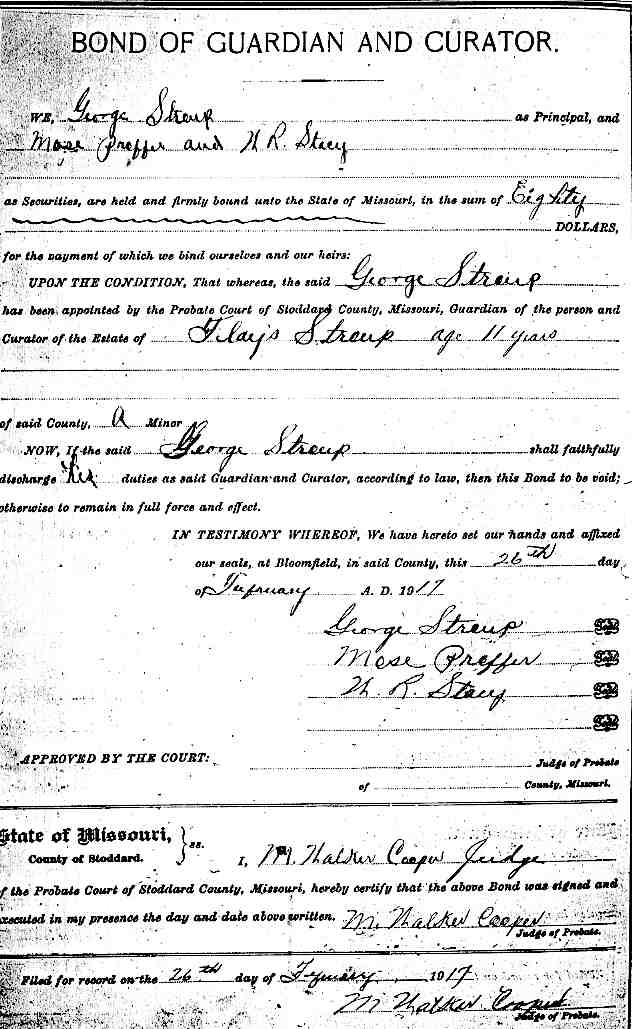 BOND OF GUARDIAN AND CURATOR.
WE, George Stroup as Principal, and
Mose Preffer and W R. Stacy
as Securities, are held and firmly bound unto the State of Missouri, in the sum of Eighty
DOLLARS,
for the payment of which we bind ourselves and our heirs:
UPON THE CONDITION, That whereas, the said George Stroup
has been appointed by the Probate Court of Stoddard County, Missouri, Guardian of the person and
Curator of the Estate of Stroup age 11 years
of said County, A Minor
NOW, If the said George Stroup shall faithfully
discharge his duties as said Guardian and Curator, according to law, then this Bond to be void;
otherwise to remain in full force and effect.
IN TESTIMONY WHEREOF, We have hereto set our hands and affixed
our seals, at Bloomfield, in said County, this 26th day
of A. D. 1917
George Stroup
Mose Preffer
W. R. Stacy
APPROVED BY THE COURT:
Judge of Probate
of County, Missouri.
State of Missouri,
County of Stoddard. } ss. I, M. Walker Cooper Judge
of the Probate Court of Stoddard County, Missouri, hereby certify that the above Bond was signed and
executed in my presence the day and date above written. M. Walker Cooper
Judge of Probate.
Filed for record on the 26th day of 1917
M Walker Cooper
Judge of Probate.